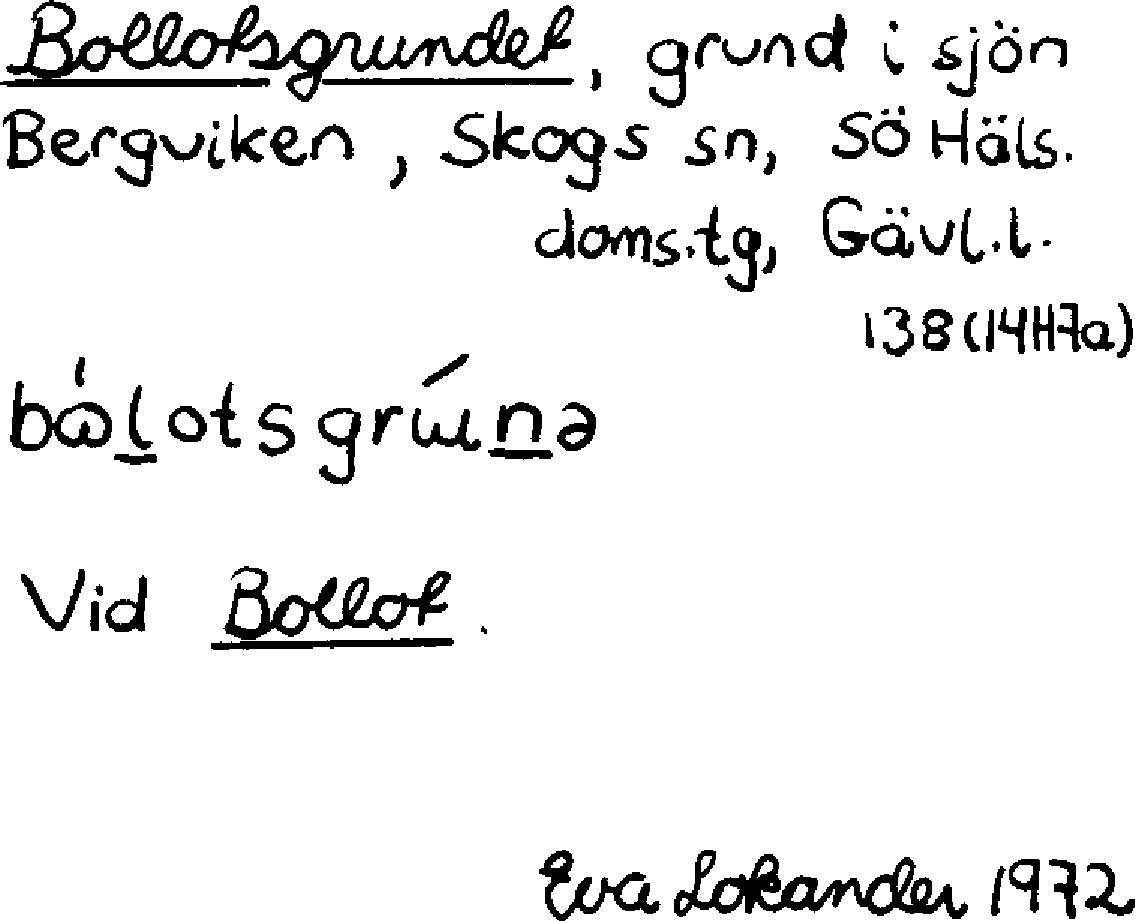 Bollotsgrundet, grund i sjön
Bergviken, Skogs sn, Sö Häls.
doms.tg, Gävl.l.
138 (14H7a)
bɷ̀l̲otsgrɯ́n̲ə
Vid Bollot.
Eva Lokander 1972